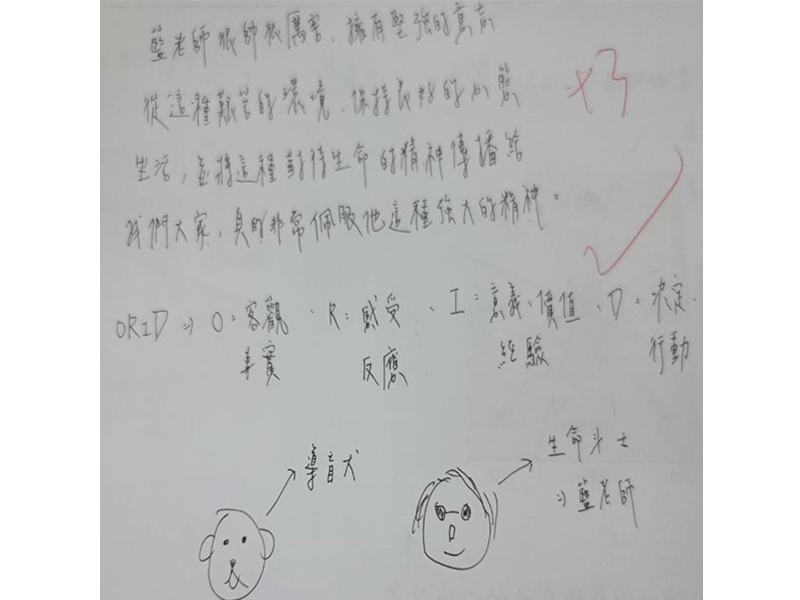 藍老師很帥很厲害、擁有堅強的意志
從這種艱苦的環境、保持良好的心態
生活，並將這種對待生命的精神傳播給
我們大家，真的非常佩服他這種強大的精神。
+3
ORID ⇒ O：客觀事實、R：感受反應、I：意義、價值經驗、D：決定、行動
導盲犬
生命斗士
⇒ 藍老師